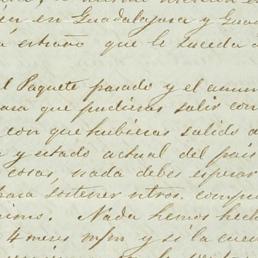 en en Guadalajara y Gua
extraño que le suceda a
l Paquete pasado y el anun
para que pudieras salir con
con que hubieras salido a
y estado actual del país
cosas, nada debes esperar
para sostener otros comp
Nada hemos hech
4 meses m/m y si la cue